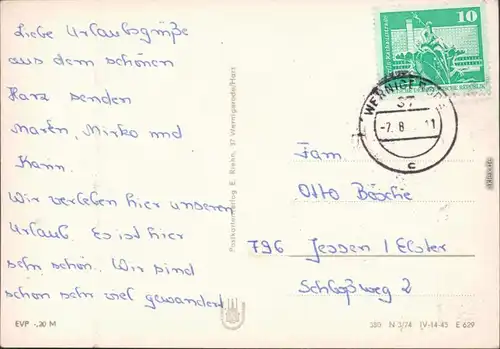 Liebe Urlaubsgrüße
aus dem schönen
Harz senden
Maren, Mirko und
Karin.
Wir verleben hier unseren
Urlaub. Es ist hier
sehr schön. Wir sind
schon sehr viel gewandert.
EVP -,20 M
Postkartenverlag E. Riehn, 37 Wernigerode/Harz
10
DEUTSCHE DEMOKRATISCHE REPUBLIK
WERNIGERODE
37
-7. 8. 11
c
Fam.
Otto Bösche
796 Jessen / Elster
Schloßweg 2
380 N 3/74 IV-14-45 E 629